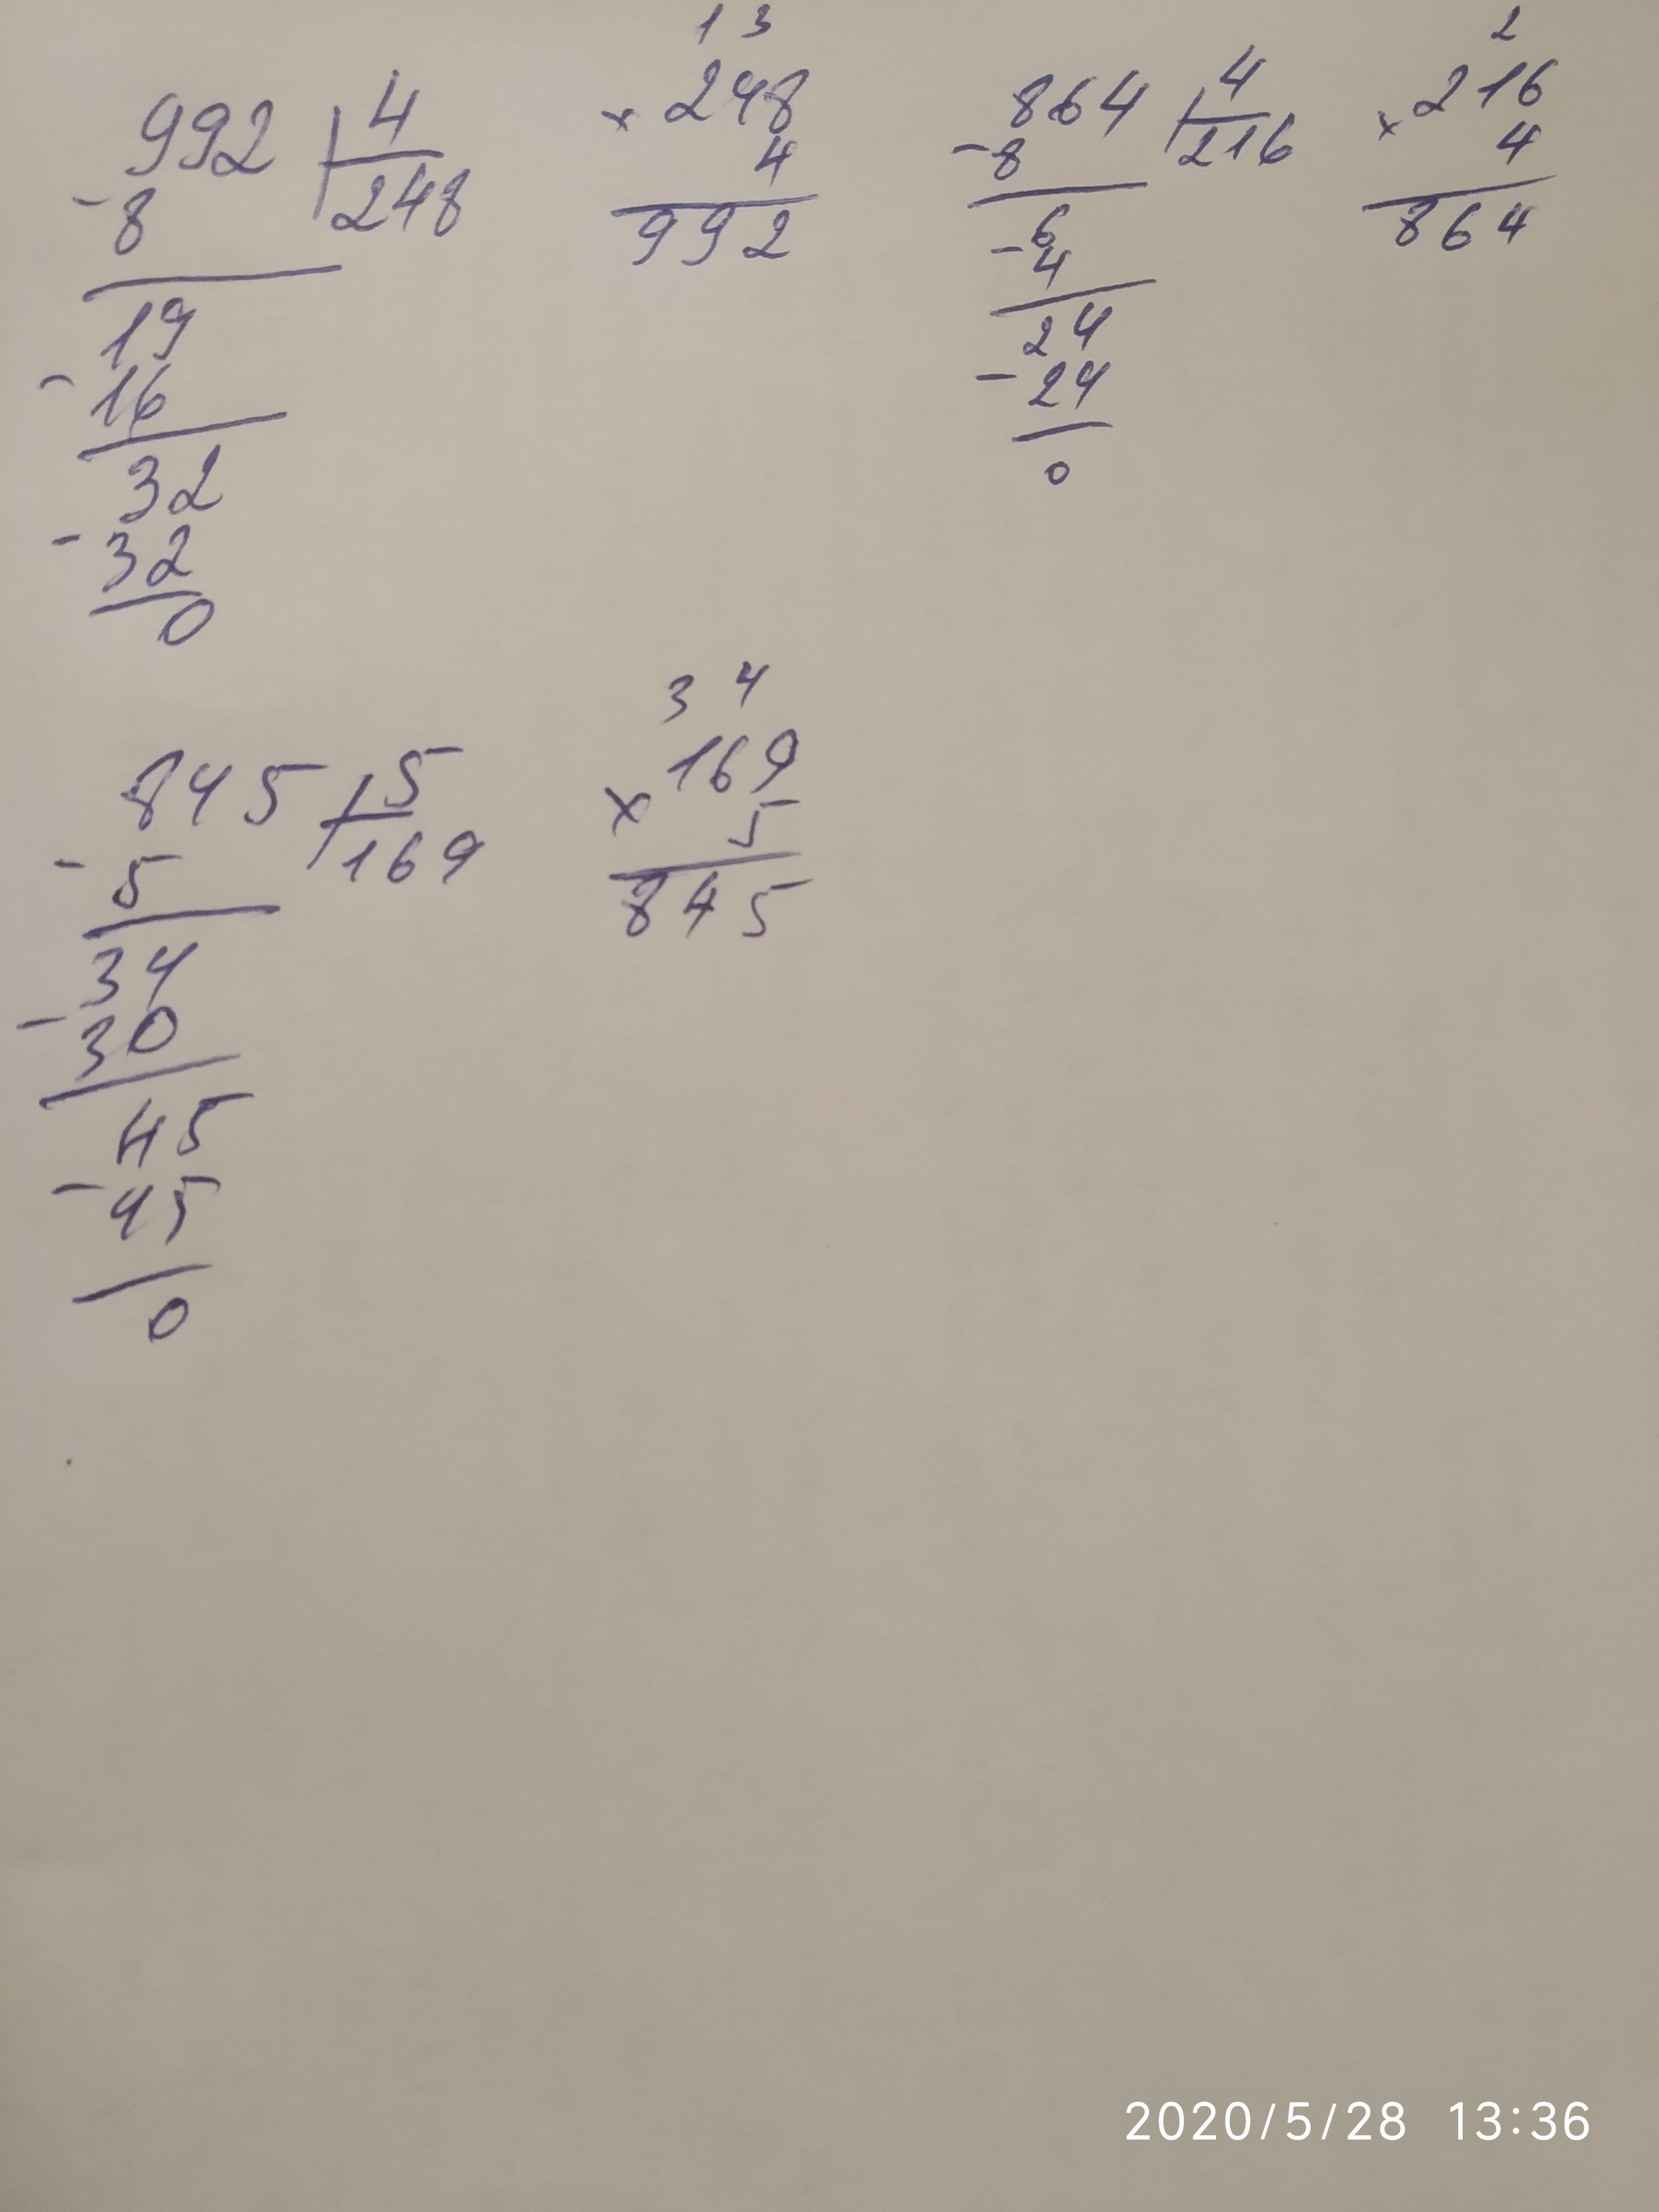 992 4
-8 248
19
-16
32
-32
0
1 3
× 248
4
992
864 4
-8 216
-6
4
24
-24
0
2
× 216
4
864
845 5
-5 169
34
-30
45
-45
0
3 4
169
× 5
845
2020/5/28 13:36